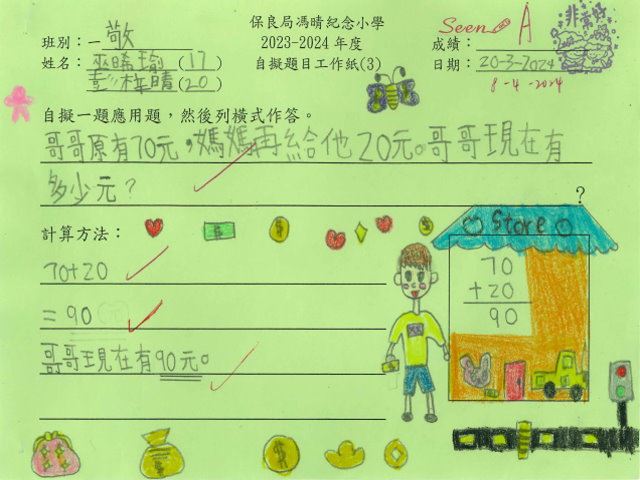 保良局馮晴紀念小學
2023-2024年度
自擬題目工作紙(3)
班別：一敬
姓名：巫晞瑜 (17)
彭梓晴 (20)
Seen A
成績：
日期：20-3-2024
8-4-2024
非常好
自擬一題應用題，然後列橫式作答。
哥哥原有70元，媽媽再給他20元。哥哥現在有
多少元？
?
計算方法：
70+20
=90(元)
哥哥現在有90元。
Store
70
+20
90